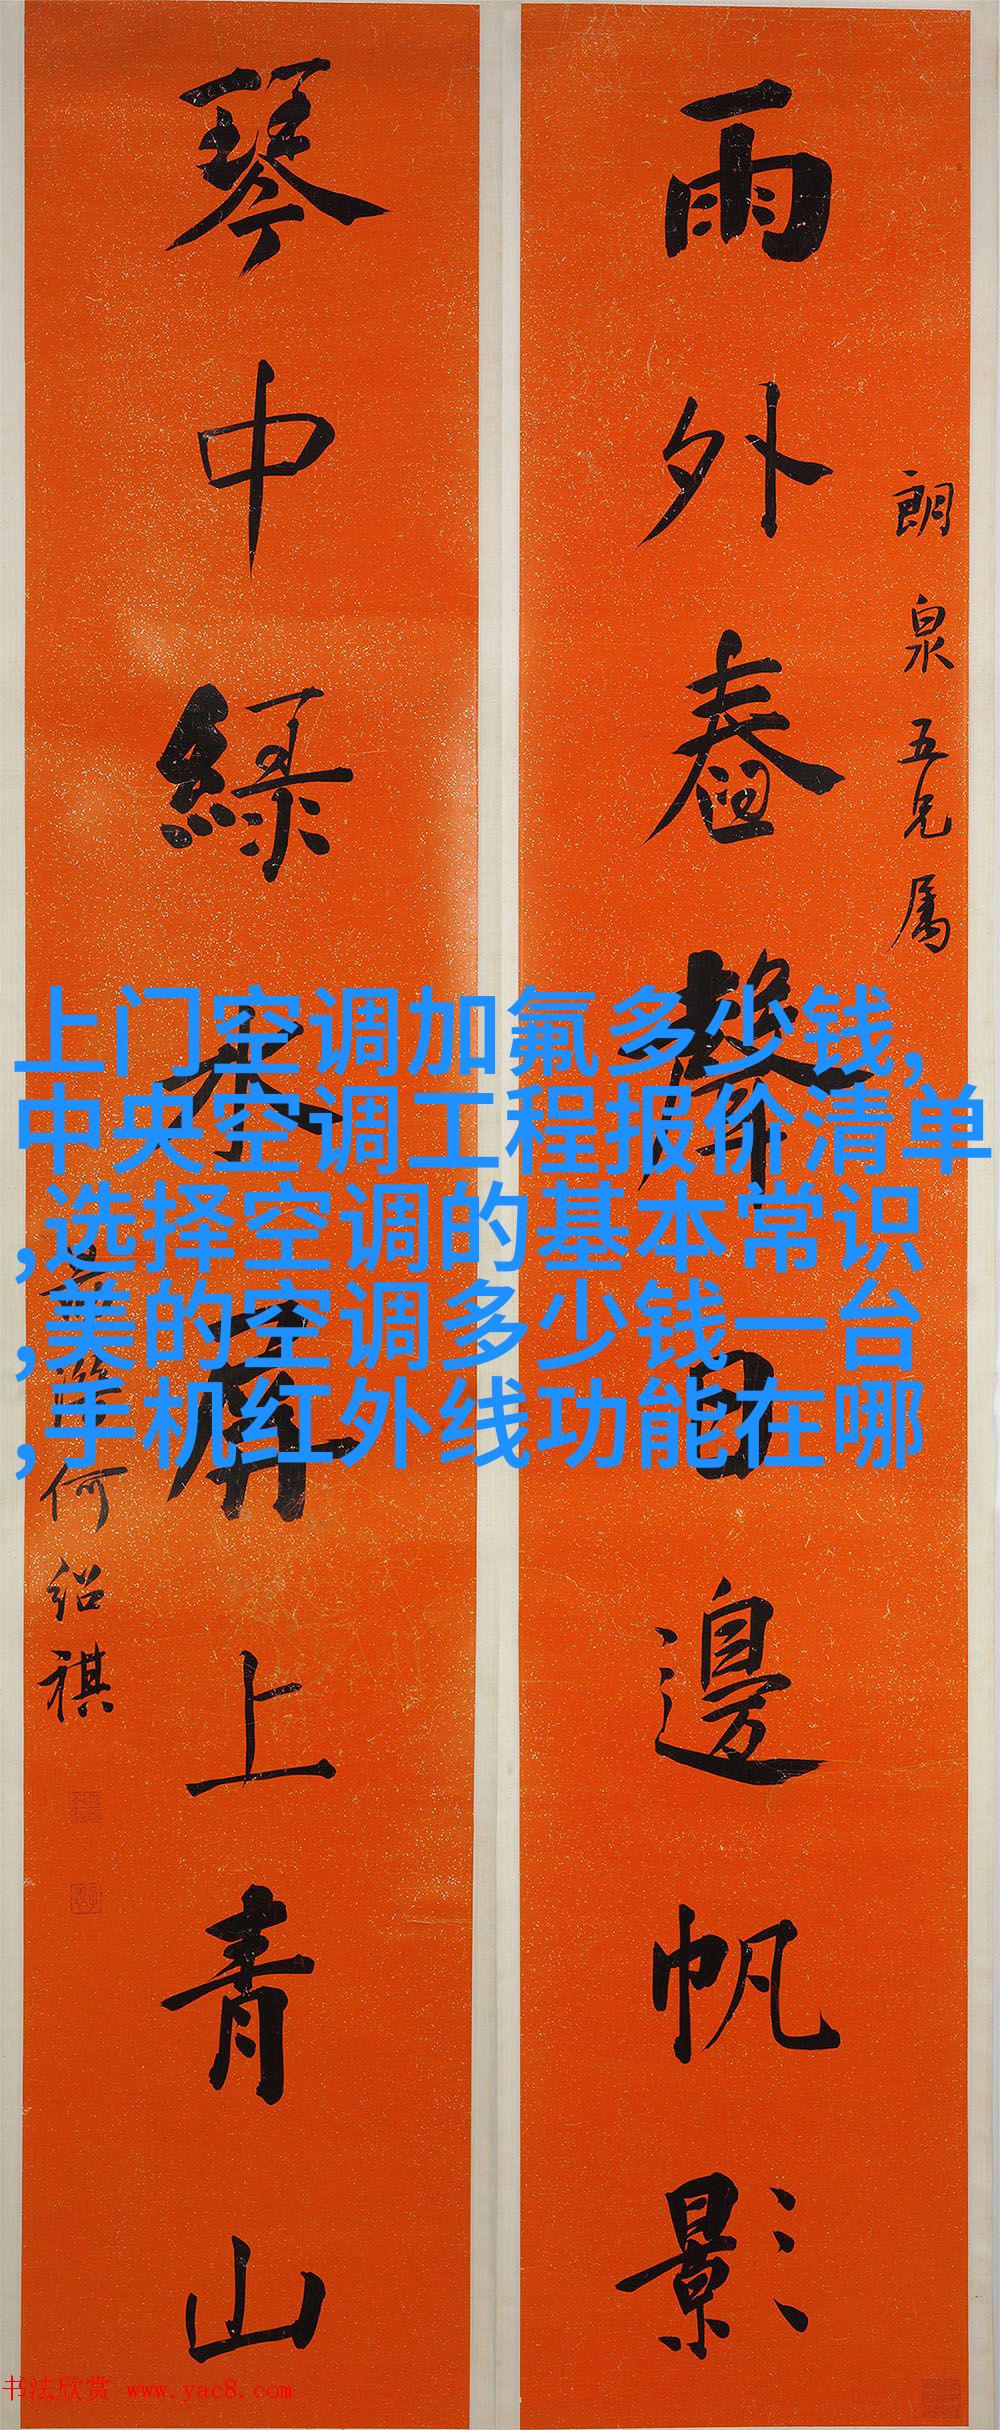 朗泉五兄屬
雨外舂聲日邊帆影
琴中綠水屏上青山
何紹祺
上门空调加氟多少钱,
中央空调工程报价清单
,选择空调的基本常识
,美的空调多少钱一台
,手机红外线功能在哪
书法欣赏 www.yac8.com